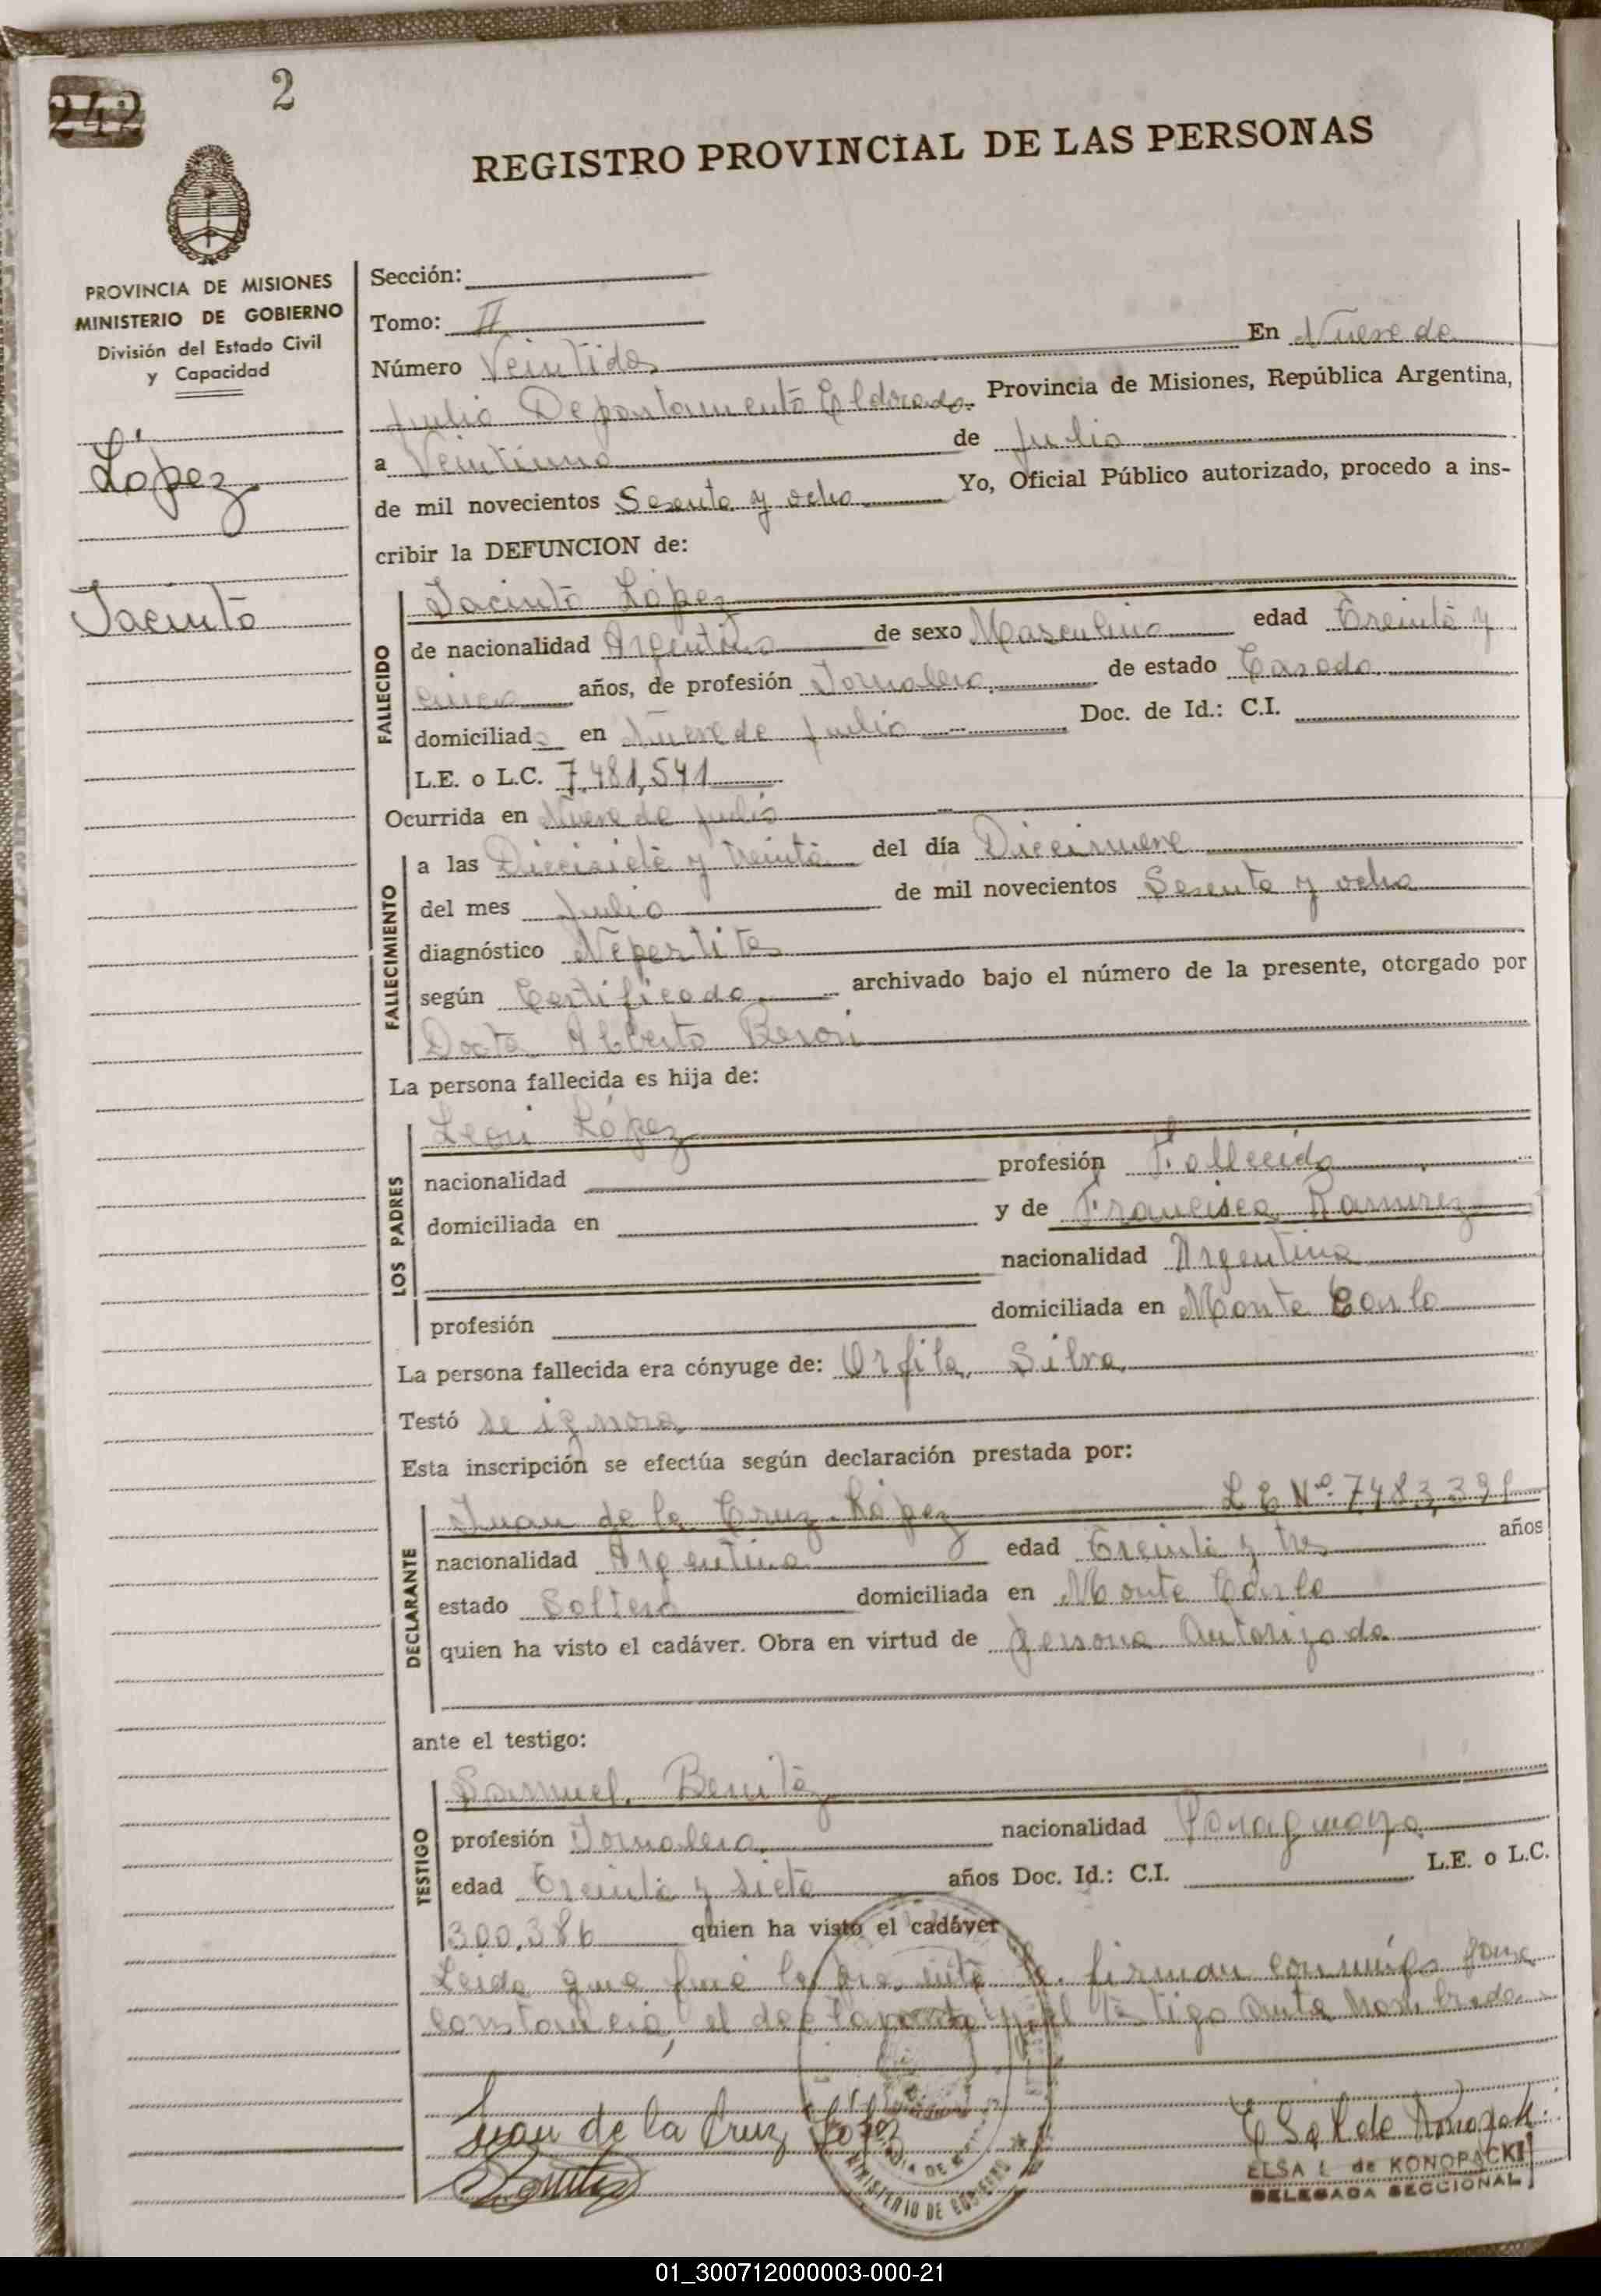 242
2
REGISTRO PROVINCIAL DE LAS PERSONAS
PROVINCIA DE MISIONES
MINISTERIO DE GOBIERNO
División del Estado Civil
y Capacidad
López
Jacinto
Sección:
Tomo: II
Número Veintidos En Nueve de
Julio Departamento Eldorado. Provincia de Misiones, República Argentina,
a Veintiuno de Julio
de mil novecientos Sesenta y ocho Yo, Oficial Público autorizado, procedo a ins-
cribir la DEFUNCION de:
FALLECIDO
Jacinto López
de nacionalidad Argentina de sexo Masculino edad Treinta y
cinco años, de profesión Jornalero de estado Casado
domiciliado en Nueve de Julio Doc. de Id.: C.I.
L.E. o L.C. 7.481,541
Ocurrida en Nueve de Julio
FALLECIMIENTO
a las Diecisiete y treinta del día Diecinueve
del mes Julio de mil novecientos Sesenta y ocho
diagnóstico
según Certificado archivado bajo el número de la presente, otorgado por
Alberto
La persona fallecida es hija de:
LOS PADRES
Leon López
nacionalidad profesión Fallecido
domiciliada en y de Francisca Ramirez
nacionalidad Argentina
profesión domiciliada en Monte Carlo
La persona fallecida era cónyuge de: Orfila Silva
Testó se ignora
Esta inscripción se efectúa según declaración prestada por:
DECLARANTE
Juan de la Cruz López L E Nº 7,483,391
nacionalidad Argentina edad Treinta y tres años
estado Soltero domiciliada en Monte Carlo
quien ha visto el cadáver. Obra en virtud de persona Autorizada
ante el testigo:
TESTIGO
Samuel Benitez
profesión Jornalero nacionalidad Paraguaya
edad Treinta y siete años Doc. Id.: C.I. L.E. o L.C.
300,386 quien ha visto el cadáver
Leida que fué la presente la firman conmigo para
constancia, el declarante y el testigo ante nombrado
Juan de la Cruz López
Benitez
MINISTERIO DE GOBIERNO
ELSA L. de KONOPACKI
DELEGADA SECCIONAL
01_300712000003-000-21